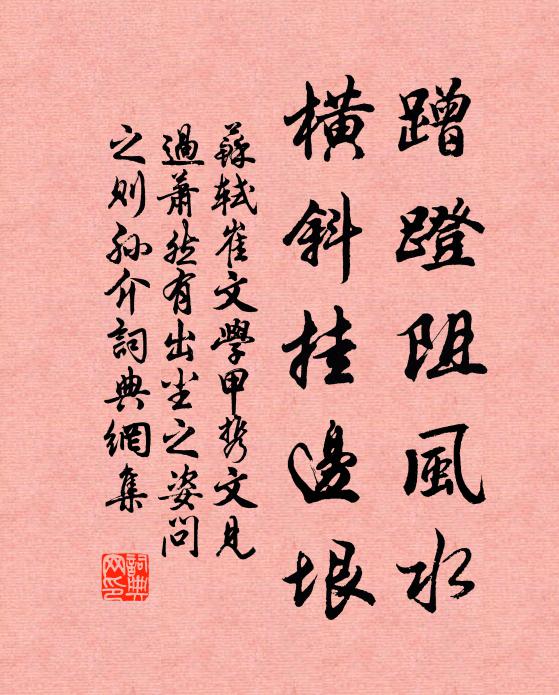 蹭蹬阻風水
橫斜挂邊垠
蘇軾崔文學甲攜文見
過蕭然有出尘之姿問
之則孙介詞典網集
詞典網印